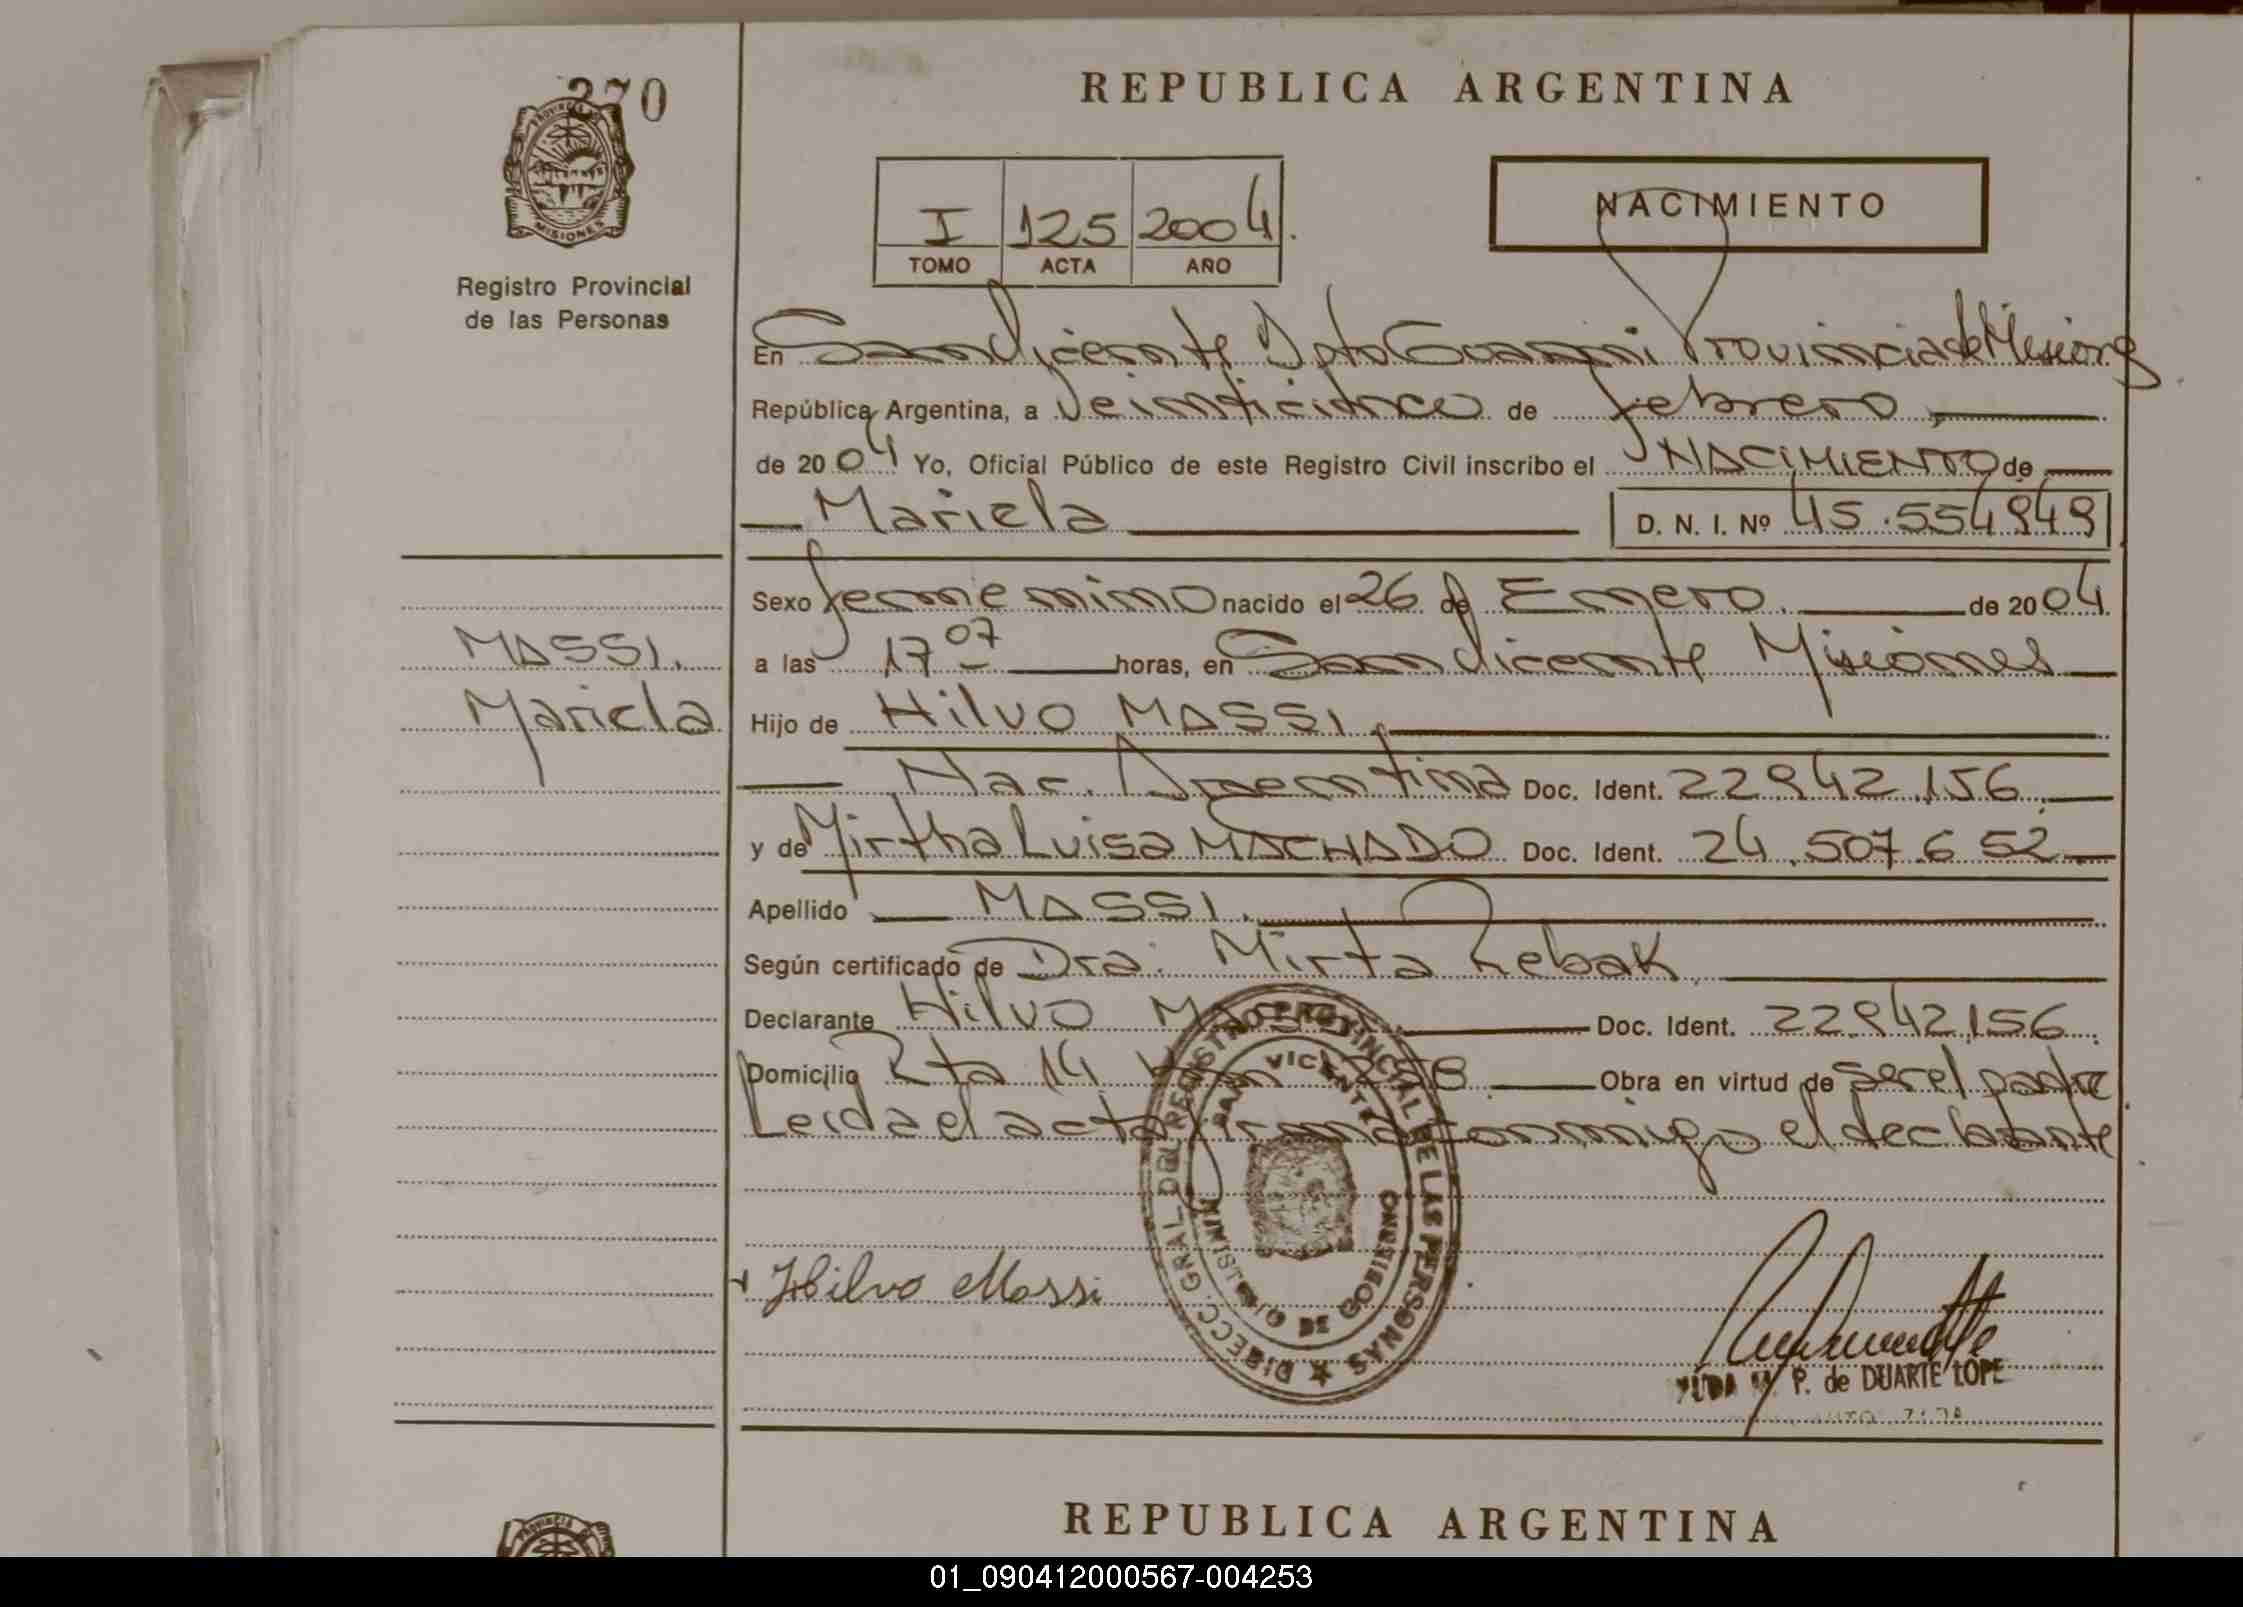 270
REPUBLICA ARGENTINA
PROVINCIA DE
MISIONES
Registro Provincial
de las Personas
I 125 2004
TOMO ACTA AÑO
NACIMIENTO
En San Vicente Dpto Guarani Provincia de Misiones
República Argentina, a Veinticinco de febrero
de 2004 Yo, Oficial Público de este Registro Civil inscribo el NACIMIENTO de
Mariela D. N. I. Nº 45.554.949
Sexo femenino nacido el 26 de Enero de 2004
MASSI.
Mariela
a las 17 07 horas, en San Vicente Misiones
Hijo de Hilvo MASSI
Nac. Argentina Doc. Ident. 22.942.156
y de Mirtha Luisa MACHADO Doc. Ident. 24.507.652
Apellido MASSI.
Según certificado de Dra. Mirta Rebak
Declarante Hilvo MASSI Doc. Ident. 22.942.156
Domicilio Rta 14 Km Obra en virtud de ser el padre
Leida el acta firma conmigo el declarante
DIRECC. GRAL. DEL REGISTRO PROVINCIAL DE LAS PERSONAS
SAN VICENTE
MINISTERIO DE GOBIERNO
Hilvo Massi
P. de DUARTE LOPE
REPUBLICA ARGENTINA
PROVINCIA
01_090412000567-004253